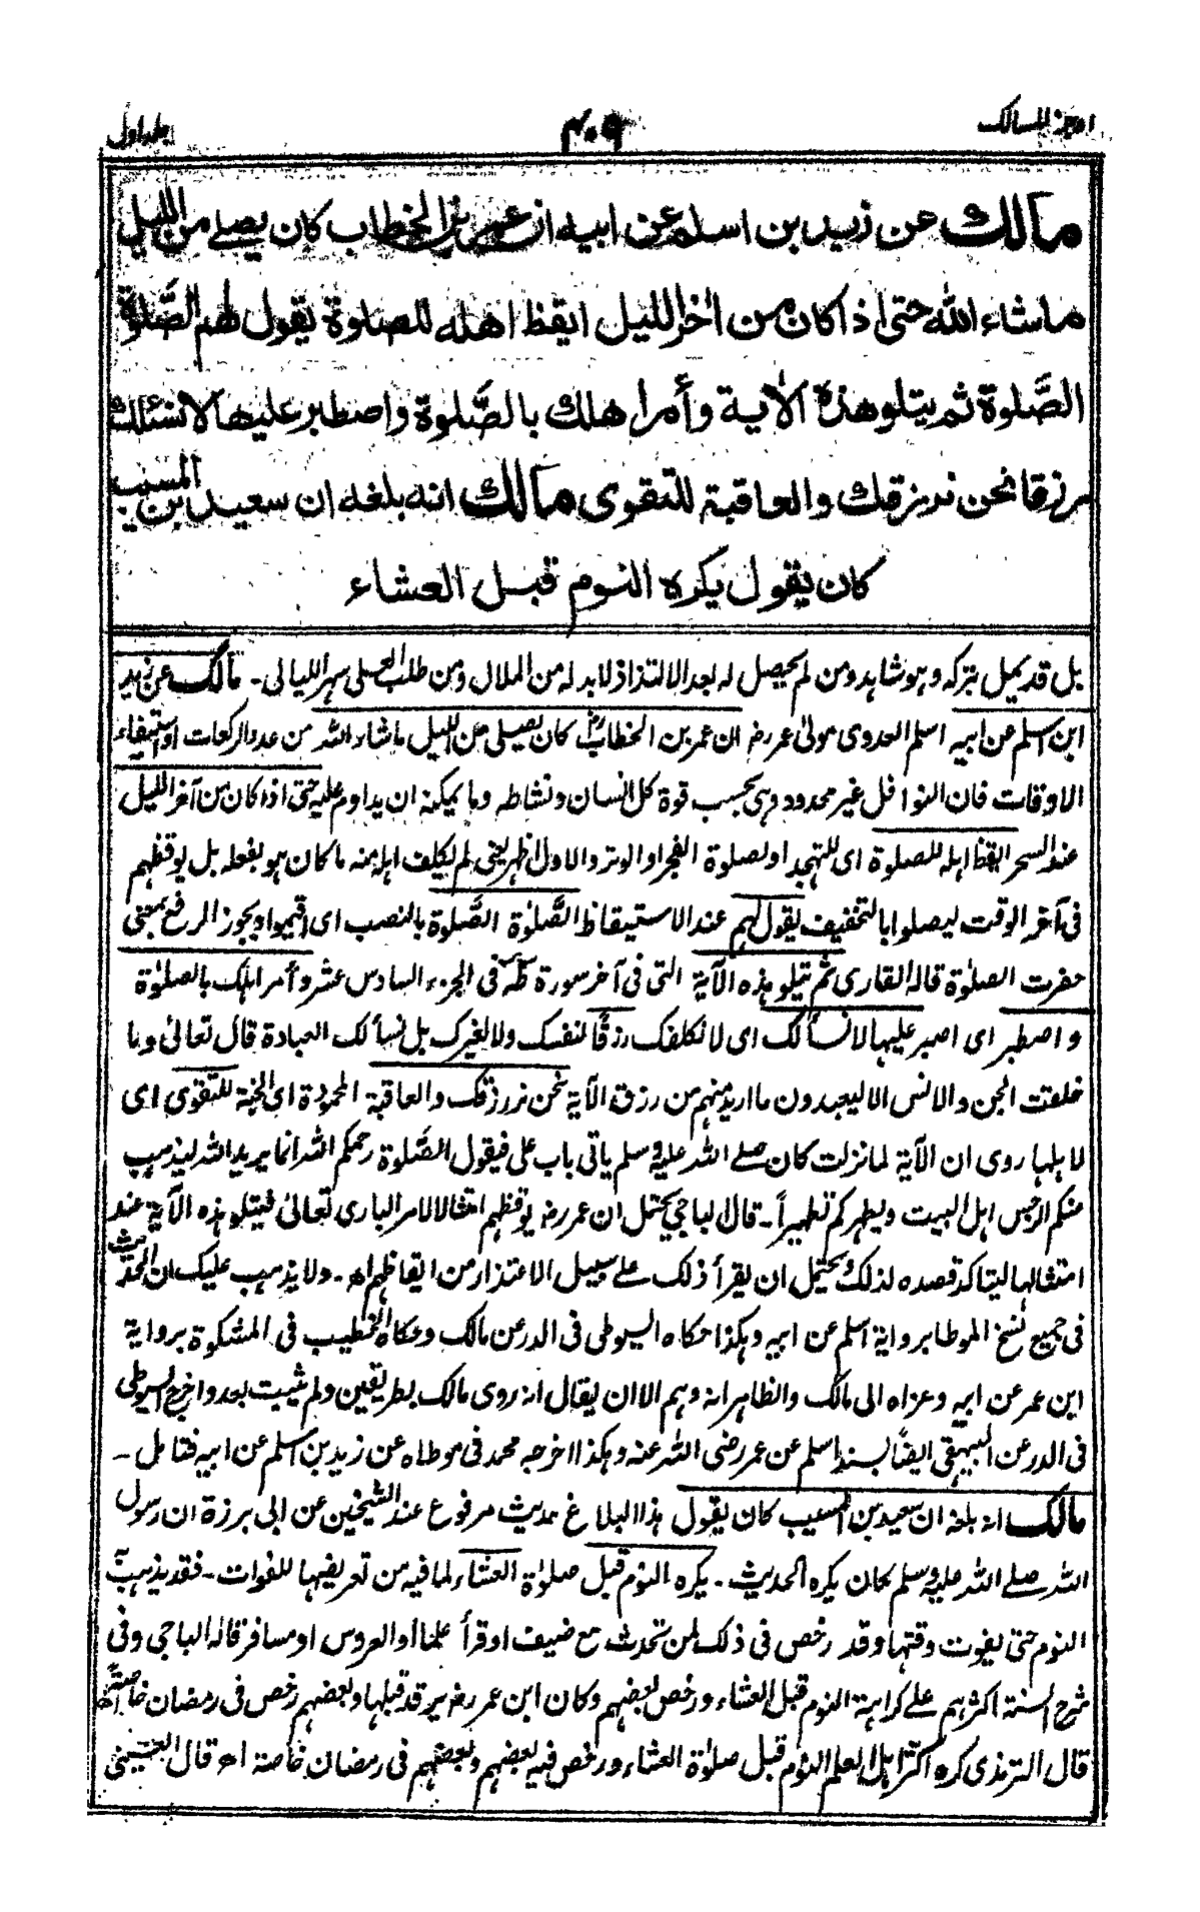 اوجز المسالك
٤٠٩
جلد اول
مالك عن زيد بن اسلم عن ابيه ان عمر بن الخطاب كان يصلے من الليل
ماشاء الله حتى اذا كان من اٰخر الليل ايقظ اهله للصلوة يقول لهم الصَّلوة
الصَّلوة ثم يتلو هذه الاٰية وأمر اهلك بالصَّلوة واصطبر عليها لا نسئلك
رزقا نحن نرزقك والعاقبة للتقوى مالك انه بلغه ان سعيد بن المسيب
كان يقول يكره النوم قبل العشاء
بل قد يمل بتركه وهو شاهد ومن لم يحصل له بعد الالتذاذ لابد له من الملال ومن طلب العلى سهر الليالى ـ مالك عن زيد
ابن اسلم عن ابيه اسلم العدوى مولىٰ عمر رضـ ان عمر بن الخطاب رضـ كان يصلى من الليل ماشاء الله من عدد الركعات او استيفاء
الاوقات فان النوافل غير محدود وهى بحسب قوة كل انسان ونشاطه وما يمكنه ان يداوم عليه حتى اذا كان من آخر الليل
عند السحر ايقظ اهله للصلوة اى للتهجد او لصلوة الفجر او الوتر والاول اظهر يعنى لم يكلف اهله منه ما كان هو يفعله بل يوقظهم
فى آخر الوقت ليصلوا بالتخفيف يقول لهم عند الاستيقاظ الصَّلوٰة الصَّلوة بالنصب اى اقيموا ويجوز الرفع بمعنى
حضرت الصلوٰة قاله القارى ثم يتلو هذه الآية التى فى آخر سورة طٰهٰ فى الجزء السادس عشر وأمر اهلك بالصلوٰة
واصطبر اى اصبر عليها لا نسألك اى لا نكلفك رزقًا لنفسك ولا لغيرك بل نسألك العبادة قال تعالىٰ وما
خلقت الجن والانس الا ليعبدون ما اريد منهم من رزق الآية نحن نرزقك والعاقبة المحمودة اى الجنة للتقوى اى
لاهلها روى ان الآية لما نزلت كان صلے الله عليه وسلم ياتى باب على فيقول الصَّلوة رحمكم الله انما يريد الله ليذهب
عنكم الرجس اهل البيت ويطهركم تطهيراً ـ قال الباجى يحتمل ان عمر رضـ يوقظهم امتثالا لامر البارى تعالىٰ فيتلو هذه الآية عند
امتثالها ليتاكد قصده لذلك ويحتمل ان يقرأ ذلك علے سبيل الاعتذار من ايقاظهم اھ ـ ولا يذهب عليك ان الحديث
فى جميع نسخ الموطا برواية اسلم عن ابيه وهكذا حكاه السيوطى فى الدر عن مالك وحكاه الخطيب فى المشكوة برواية
ابن عمر عن ابيه وعزاه الى مالك والظاهر انه وهم الا ان يقال انه روى مالك بطريقين ولم يثبت بعد واخرج السيوطى
فى الدر عن البيهقى ايضًا بسند اسلم عن عمر رضى الله عنه وهكذا اخرجه محمد فى موطاه عن زيد بن اسلم عن ابيه فتامل ـ
مالك انه بلغه ان سعيد بن المسيب كان يقول هذا البلاغ حديث مرفوع عند الشيخين عن ابى برزة ان رسول
الله صلے الله عليه وسلم كان يكره الحديث ـ يكره النوم قبل صلوٰة العشاء لما فيه من تعريضها للفوات ـ فقد يذهب
النوم حتى يفوت وقتها وقد رخص فى ذلك لمن تحدث مع ضيف او قرأ علما او العروس او مسافر قاله الباجى وفى
شرح السنة اكثرهم علے كراهة النوم قبل العشاء ورخص بعضهم وكان ابن عمر رضـ يرقد قبلها وبعضهم رخص فى رمضان خاصة اھ
قال الترمذى كره اكثر اهل العلم النوم قبل صلوٰة العشاء ورخص فيه بعضهم وبعضهم فى رمضان خاصة اھ قال العينى